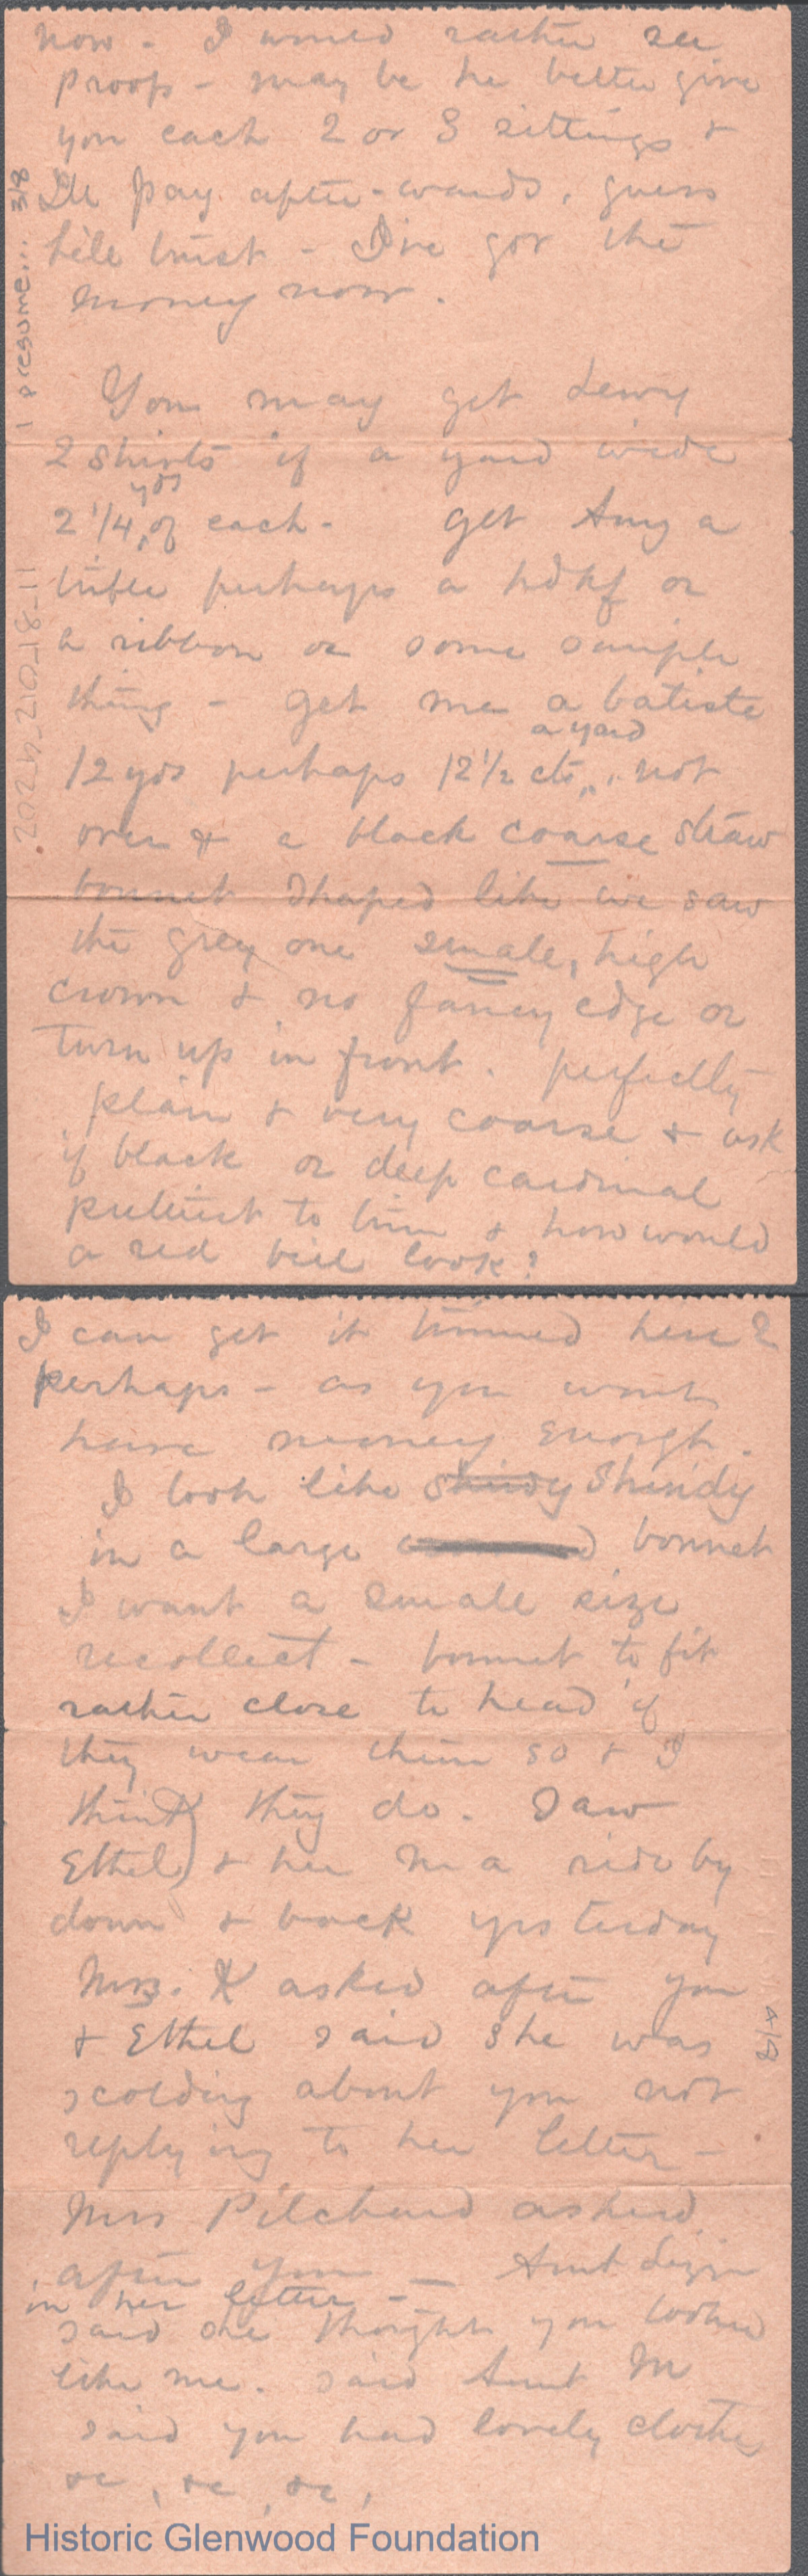 now - I would rather see
proof - may be he better give
you each 2 or 3 sittings &
I'll pay after-wards, guess
he'll trust - I've got the
money now.
You may get Lewy
2 shirts if a yard wide
2 1/4 yds of each - get Amy a
trifle perhaps a hdkf or
a ribbon or some simple
thing - get me a batiste
12 yds perhaps 12 1/2 cts a yard, not
over & a black coarse straw
bonnet shaped like we saw
the grey one small, high
crown & no fancy edge or
turn up in front. perfectly
plain & very coarse & ask
if black or deep cardinal
prettiest to trim & how would
a red veil look?
I presume... 3/8
2024_21018-11
I can get it trimmed here?
perhaps - as you wont
have money enough.
I look like Shindy Shindy
in a large bonnet
I want a small size
recollect - bonnet to fit
rather close to head if
they wear them so & I
think they do. Saw
Ethel & her Ma ride by
down & back yesterday
Mrs. K asked after you
& Ethel said she was
scolding about you not
replying to her letter -
Mrs Pilchard asked
after you - Aunt Lizzie
in her letter -
said she thought you looked
like me. said Aunt M
said you had lovely clothes
&c, &c, &c,
4/8
Historic Glenwood Foundation